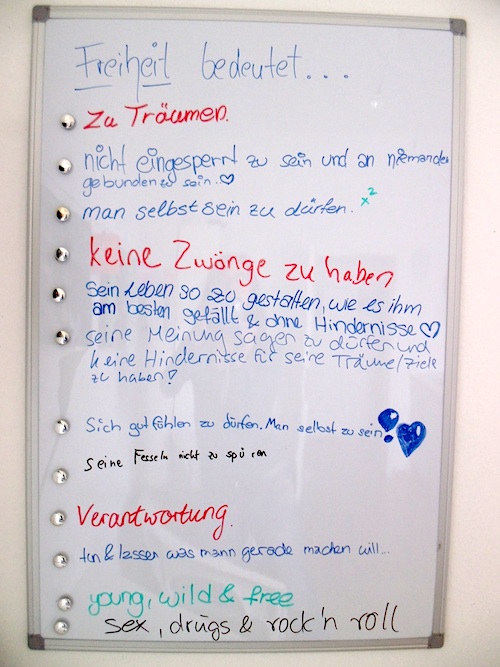 Freiheit bedeutet...
Zu Träumen.
nicht eingesperrt zu sein und an niemanden
gebunden zu sein.♡
man selbst sein zu dürfen. x²
keine Zwänge zu haben
Sein Leben so zu gestalten, wie es ihm
am besten gefällt & ohne Hindernisse♡
seine Meinung sagen zu dürfen und
keine Hindernisse für seine Träume/Ziele
zu haben!
Sich gut fühlen zu dürfen. Man selbst zu sein!
seine Fesseln nicht zu spüren
Verantwortung.
tun & lassen was mann gerade machen will...
young, wild & free
sex, drugs & rock'n roll